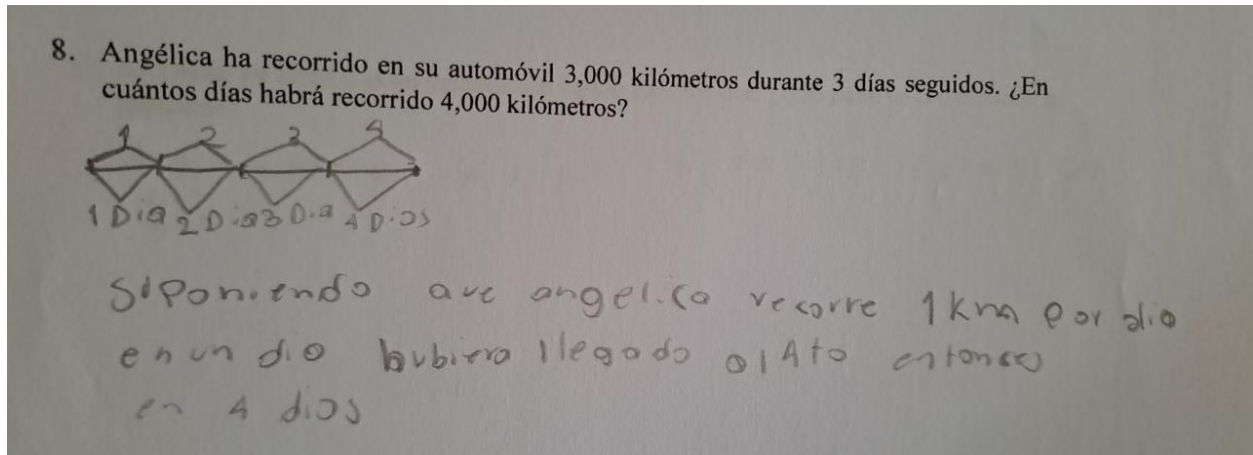 8. Angélica ha recorrido en su automóvil 3,000 kilómetros durante 3 días seguidos. ¿En
cuántos días habrá recorrido 4,000 kilómetros?
1 2 3 4
1 Dia 2 Dia 3 Dia 4 Dias
Siponiendo que angelica recorre 1 km por dia
en un dia hubiera llegado al 4to entonces
en 4 dias